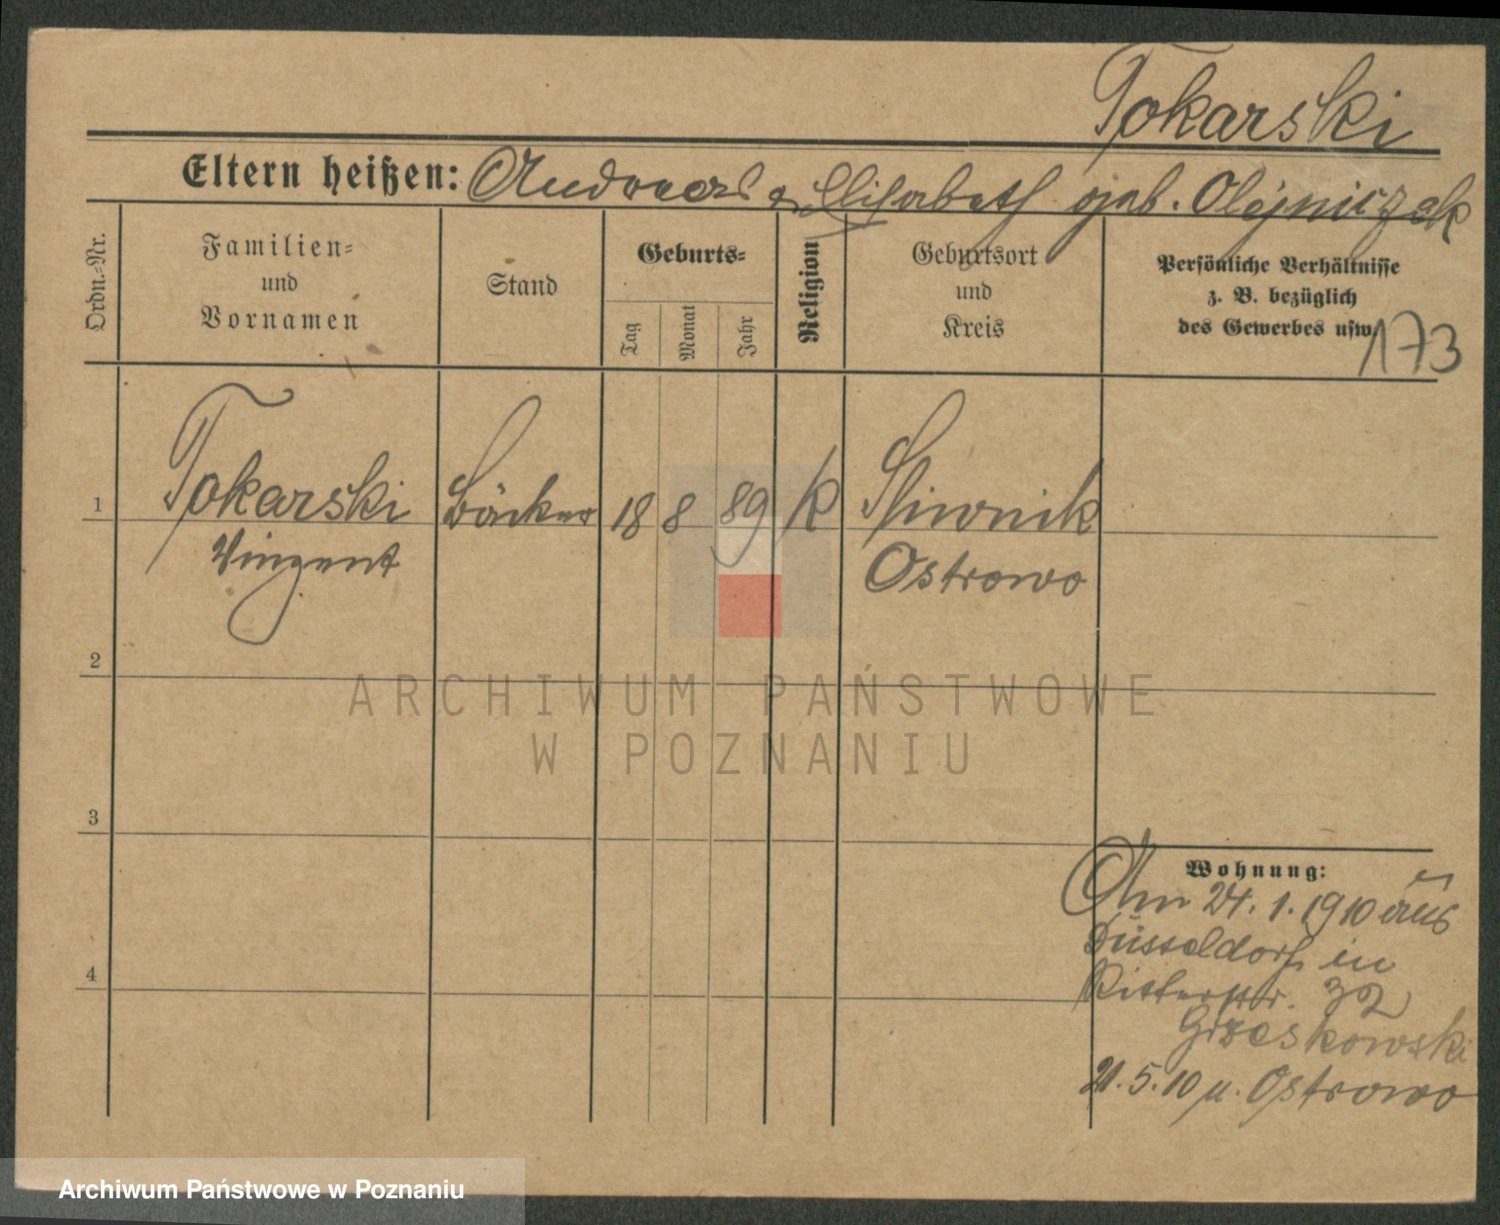 Tokarski
Eltern heißen: Andreas u. Elisabeth geb. Olejniczak
Ordn.-Nr.
Familien-
und
Vornamen
Stand
Geburts-
Tag
Monat
Jahr
Religion
Geburtsort
und
Kreis
Persönliche Verhältnisse
z. B. bezüglich
des Gewerbes usw.
173
1 Tokarski Bäcker 18 8 89 k Sliwnik
Vinzent Ostrowo
2
ARCHIWUM PAŃSTWOWE
W POZNANIU
3
Wohnung:
Am 24. 1. 1910 aus
Düsseldorf in
4
Ritterstr. 32
Grzeskowski
21. 5. 10 n. Ostrowo
Archiwum Państwowe w Poznaniu